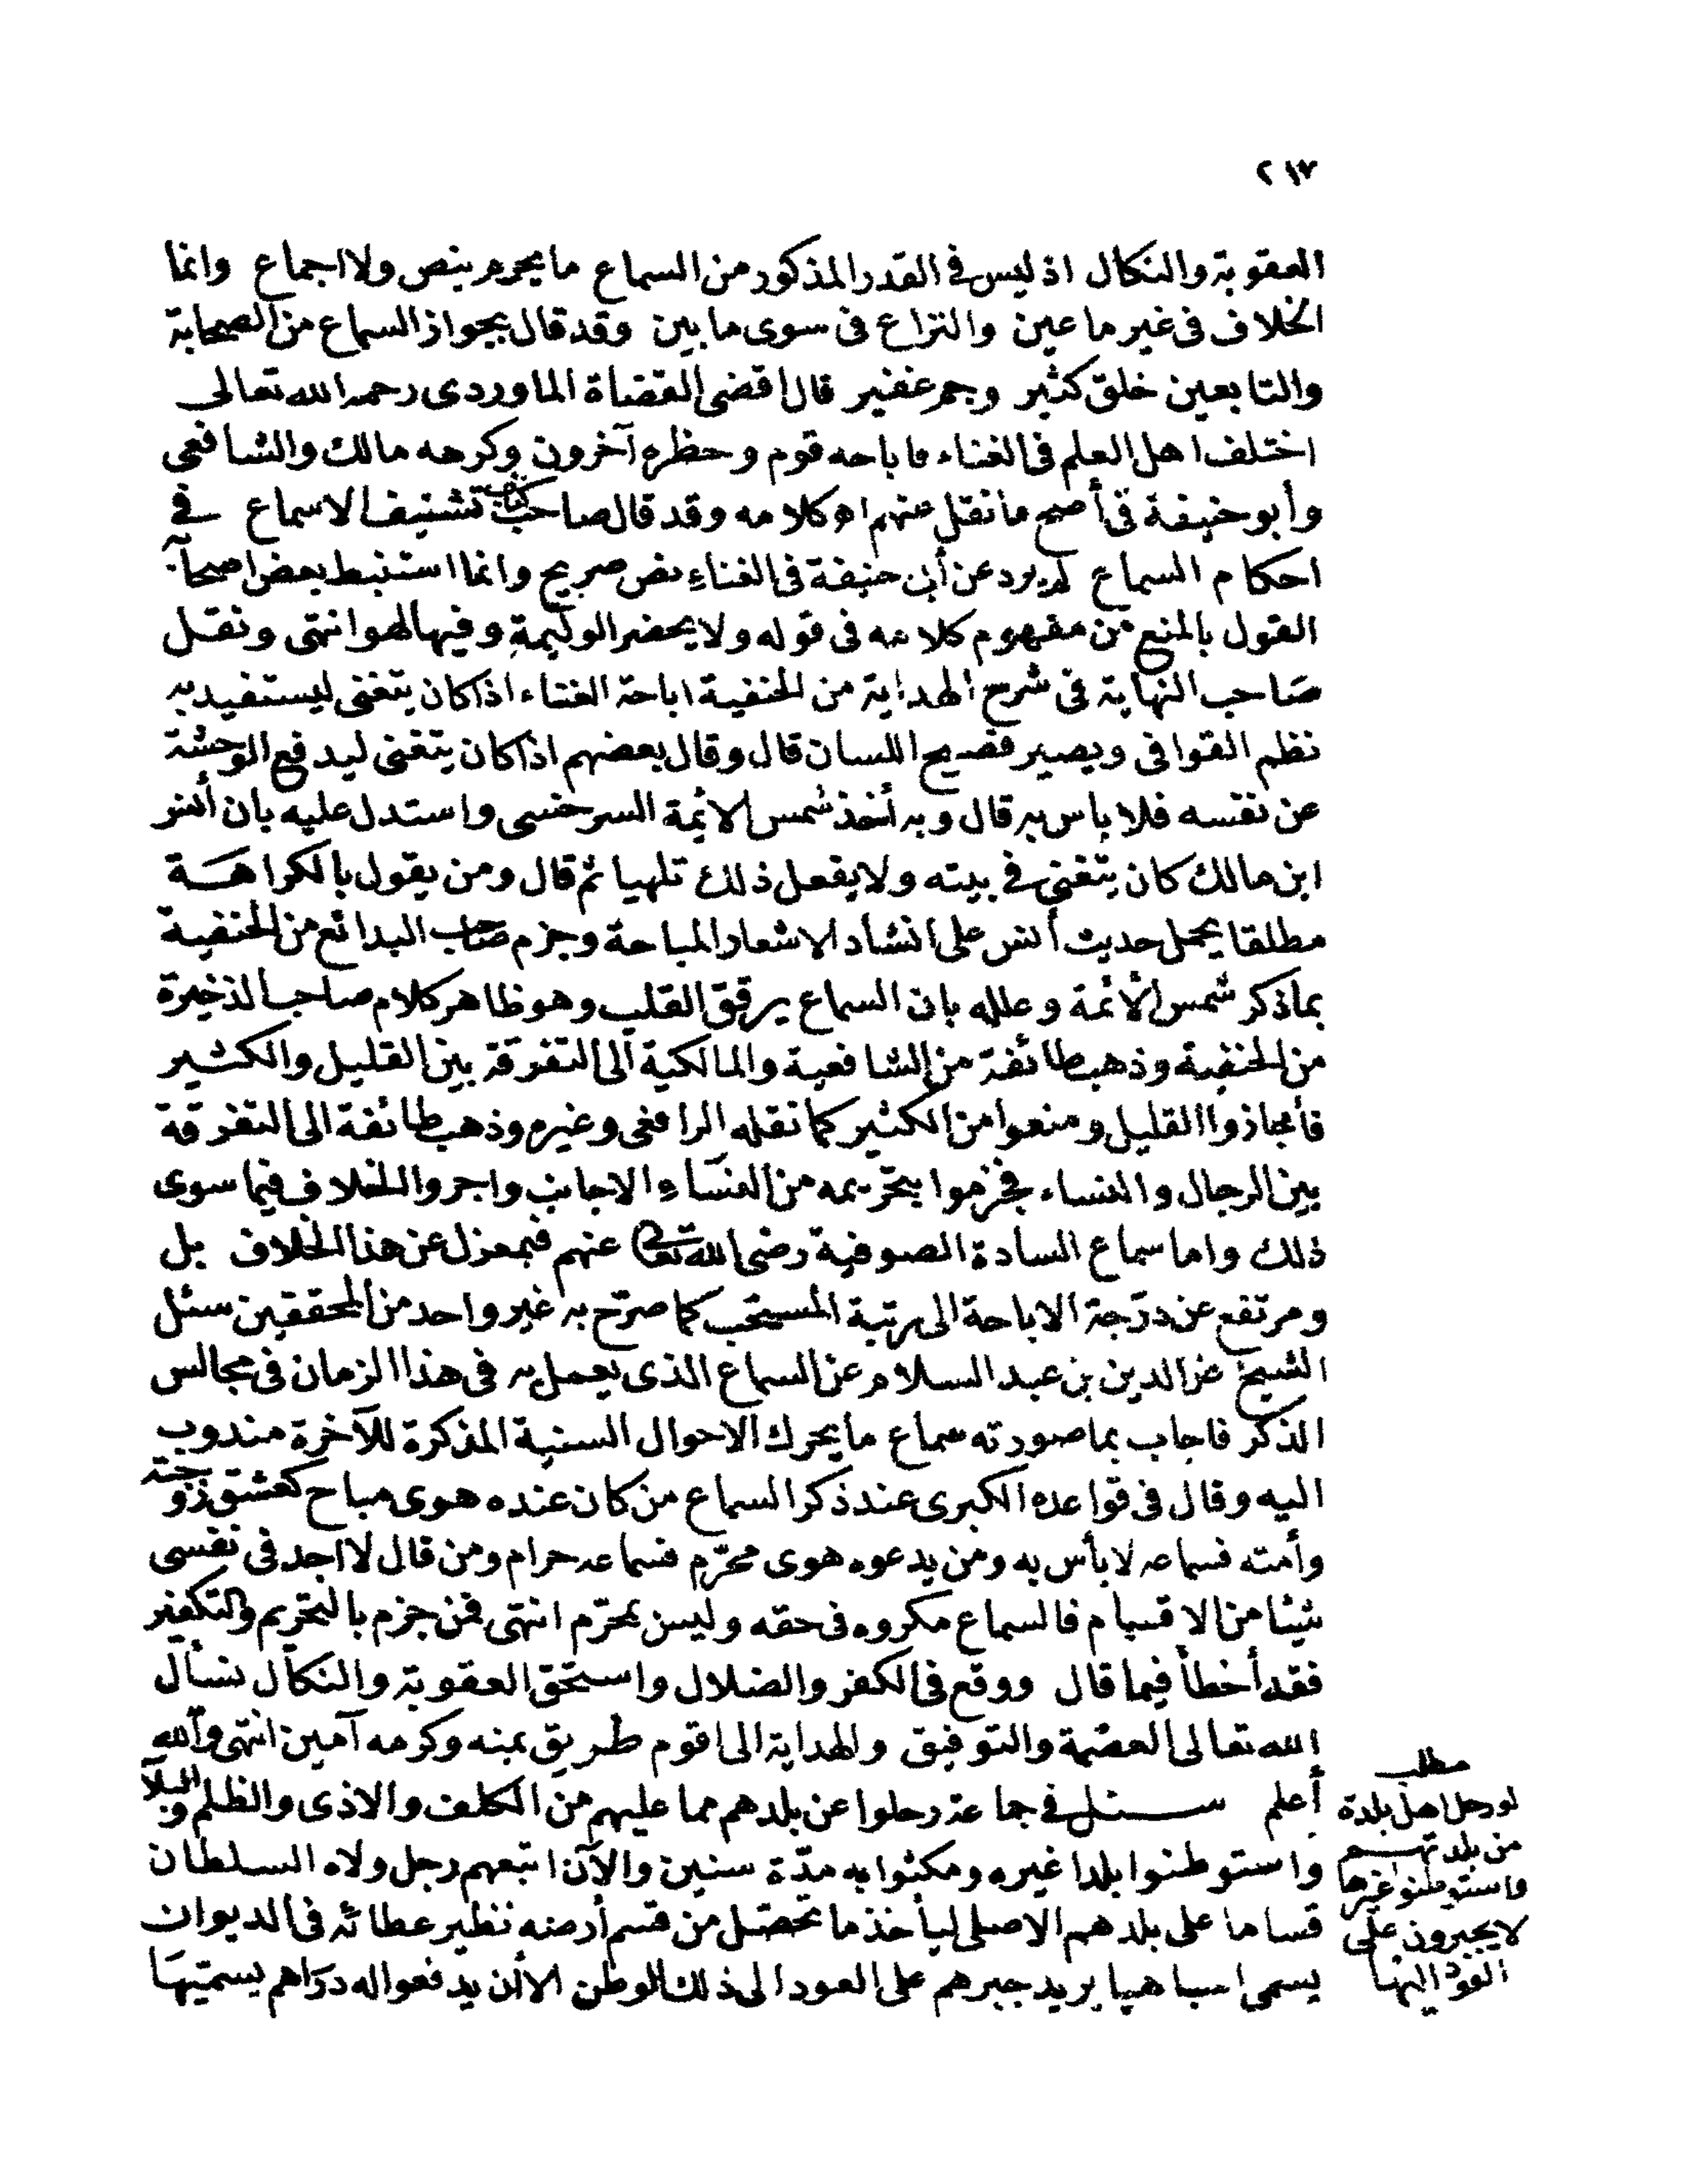 ٢١٧
العقوبة والنكال اذ ليس في القدر المذكور من السماع ما يحرم بنص ولا اجماع وانما
الخلاف في غير ما عين والنزاع في سوى ما بين وقد قال بجواز السماع من الصحابة
والتابعين خلق كثير وجم غفير قال اقضى القضاة الماوردى رحمه الله تعالى
اختلف اهل العلم فى الغناء فاباحه قوم وحظره آخرون وكرهه مالك والشافعى
وأبو حنيفة فى أصح ما نقل عنهم اه كلامه وقد قال صاحب كتاب تشنيف الاسماع في
احكام السماع لم يرد عن أبى حنيفة فى الغناء نص صريح وانما استنبط بعض اصحابه
القول بالمنع من مفهوم كلامه فى قوله ولا يحضر الوليمة وفيها لهو انتهى ونقل
صاحب النهاية فى شرح الهداية من الحنفية اباحة الغناء اذا كان يتغنى ليستفيد به
نظم القوافى ويصير فصيح اللسان قال وقال بعضهم اذا كان يتغنى ليدفع الوحشة
عن نفسه فلا باس به قال وبه أخذ شمس الائمة السرخسى واستدل عليه بان أنس
ابن مالك كان يتغنى في بيته ولا يفعل ذلك تلهيا ثم قال ومن يقول بالكراهة
مطلقا يحمل حديث أنس على انشاد الاشعار المباحة وجزم صاحب البدائع من الحنفية
بما ذكر شمس الأئمة وعلله بان السماع يرقق القلب وهو ظاهر كلام صاحب الذخيرة
من الحنفية وذهب طائفة من الشافعية والمالكية الى التفرقة بين القليل والكثير
فأجازوا القليل ومنعوا من الكثير كما نقله الرافعى وغيره وذهب طائفة الى التفرقة
بين الرجال والنساء فجزموا بتحريمه من النساء الاجانب واجروا الخلاف فيما سوى
ذلك واما سماع السادة الصوفية رضى الله تعالى عنهم فبمعزل عن هذا الخلاف بل
ومرتفع عن درجة الاباحة الى رتبة المستحب كما صرّح به غير واحد من المحققين سئل
الشيخ عز الدين بن عبد السلام عن السماع الذى يعمل به فى هذا الزمان فى مجالس
الذكر فاجاب بما صورته سماع ما يحرك الاحوال السنية المذكرة للآخرة مندوب
اليه وقال فى قواعده الكبرى عند ذكر السماع من كان عنده هوى مباح كعشق زوجته
وأمته فسماعه لا بأس به ومن يدعوه هوى محرّم فسماعه حرام ومن قال لا اجد فى نفسى
شيئا من الاقسام فالسماع مكروه فى حقه وليس بمحرّم انتهى فمن جزم بالتحريم والتكفير
فقد أخطأ فيما قال ووقع فى الكفر والضلال واستحق العقوبة والنكال نسأل
الله تعالى العصمة والتوفيق والهداية الى اقوم طريق بمنه وكرمه آمين انتهى والله
أعلم سئل في جماعة رحلوا عن بلدهم مما عليهم من الكلف والاذى والظلم والبلا
واستوطنوا بلدا غيره ومكثوا به مدّة سنين والآن اتبعهم رجل ولاه السلطان
قساما على بلدهم الاصلى ليأخذ ما تحصّل من قسم أرضه نظير عطائه فى الديوان
يسمى اسباهيا يريد جبرهم على العود الى ذلك الوطن الا أن يدفعوا له دراهم يسميها
مطلب
لو رحل اهل بلدة
من بلدتهم
واستوطنو غيرها
لا يجبرون على
العود اليها